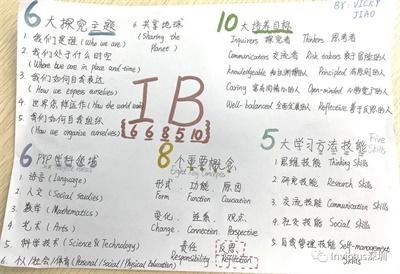 BY: VICKY JIAO
6大探究主题
1. 我们是谁 (Who we are)
2. 我们处于什么时空
(Where we are in place and time)
3. 我们如何自我表达
(How we express ourselves)
4. 世界怎样运作 (How the world works)
5. 我们如何自我组织
(How we organise ourselves)
6. 共享地球
(Sharing the Planet)
10大培养目标
Inquirers 探究者 Thinkers 思考者
Communicators 交流者 Risk takers 敢于冒险的人
Knowledgeable 知识渊博的人 Principled 有原则的人
Caring 富有同情心的人 Open-minded 心胸宽广的人
Well-balanced 全面发展的人 Reflective 善于反思的人
IB
{6 6 8 5 10}
6 PYP学科领域
1. 语言 (Language)
2. 人文 (Social Studies)
3. 数学 (Mathematics)
4. 艺术 (Arts)
5. 科学技术 (Science & Technology)
6. 个人/社会/体育 (Personal/Social/Physical Education)
8个重要概念
形式、功能、原因
Form Function Causation
变化、联系、观点
Change Connection Perspective
责任 反思
Responsibility Reflection
5大学习方法技能
Five Skills
1. 思维技能 Thinking Skills
2. 研究技能 Research Skills
3. 交流技能 Communication Skills
4. 社交技能 Social Skills
5. 自我管理技能 Self-management Skills
Invictus深圳